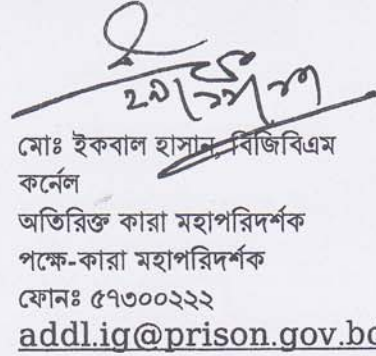 মোঃ ইকবাল হাসান, বিজিবিএম
কর্নেল
অতিরিক্ত কারা মহাপরিদর্শক
পক্ষে-কারা মহাপরিদর্শক
ফোনঃ ৫৭৩০০২২২
addl.ig@prison.gov.bd